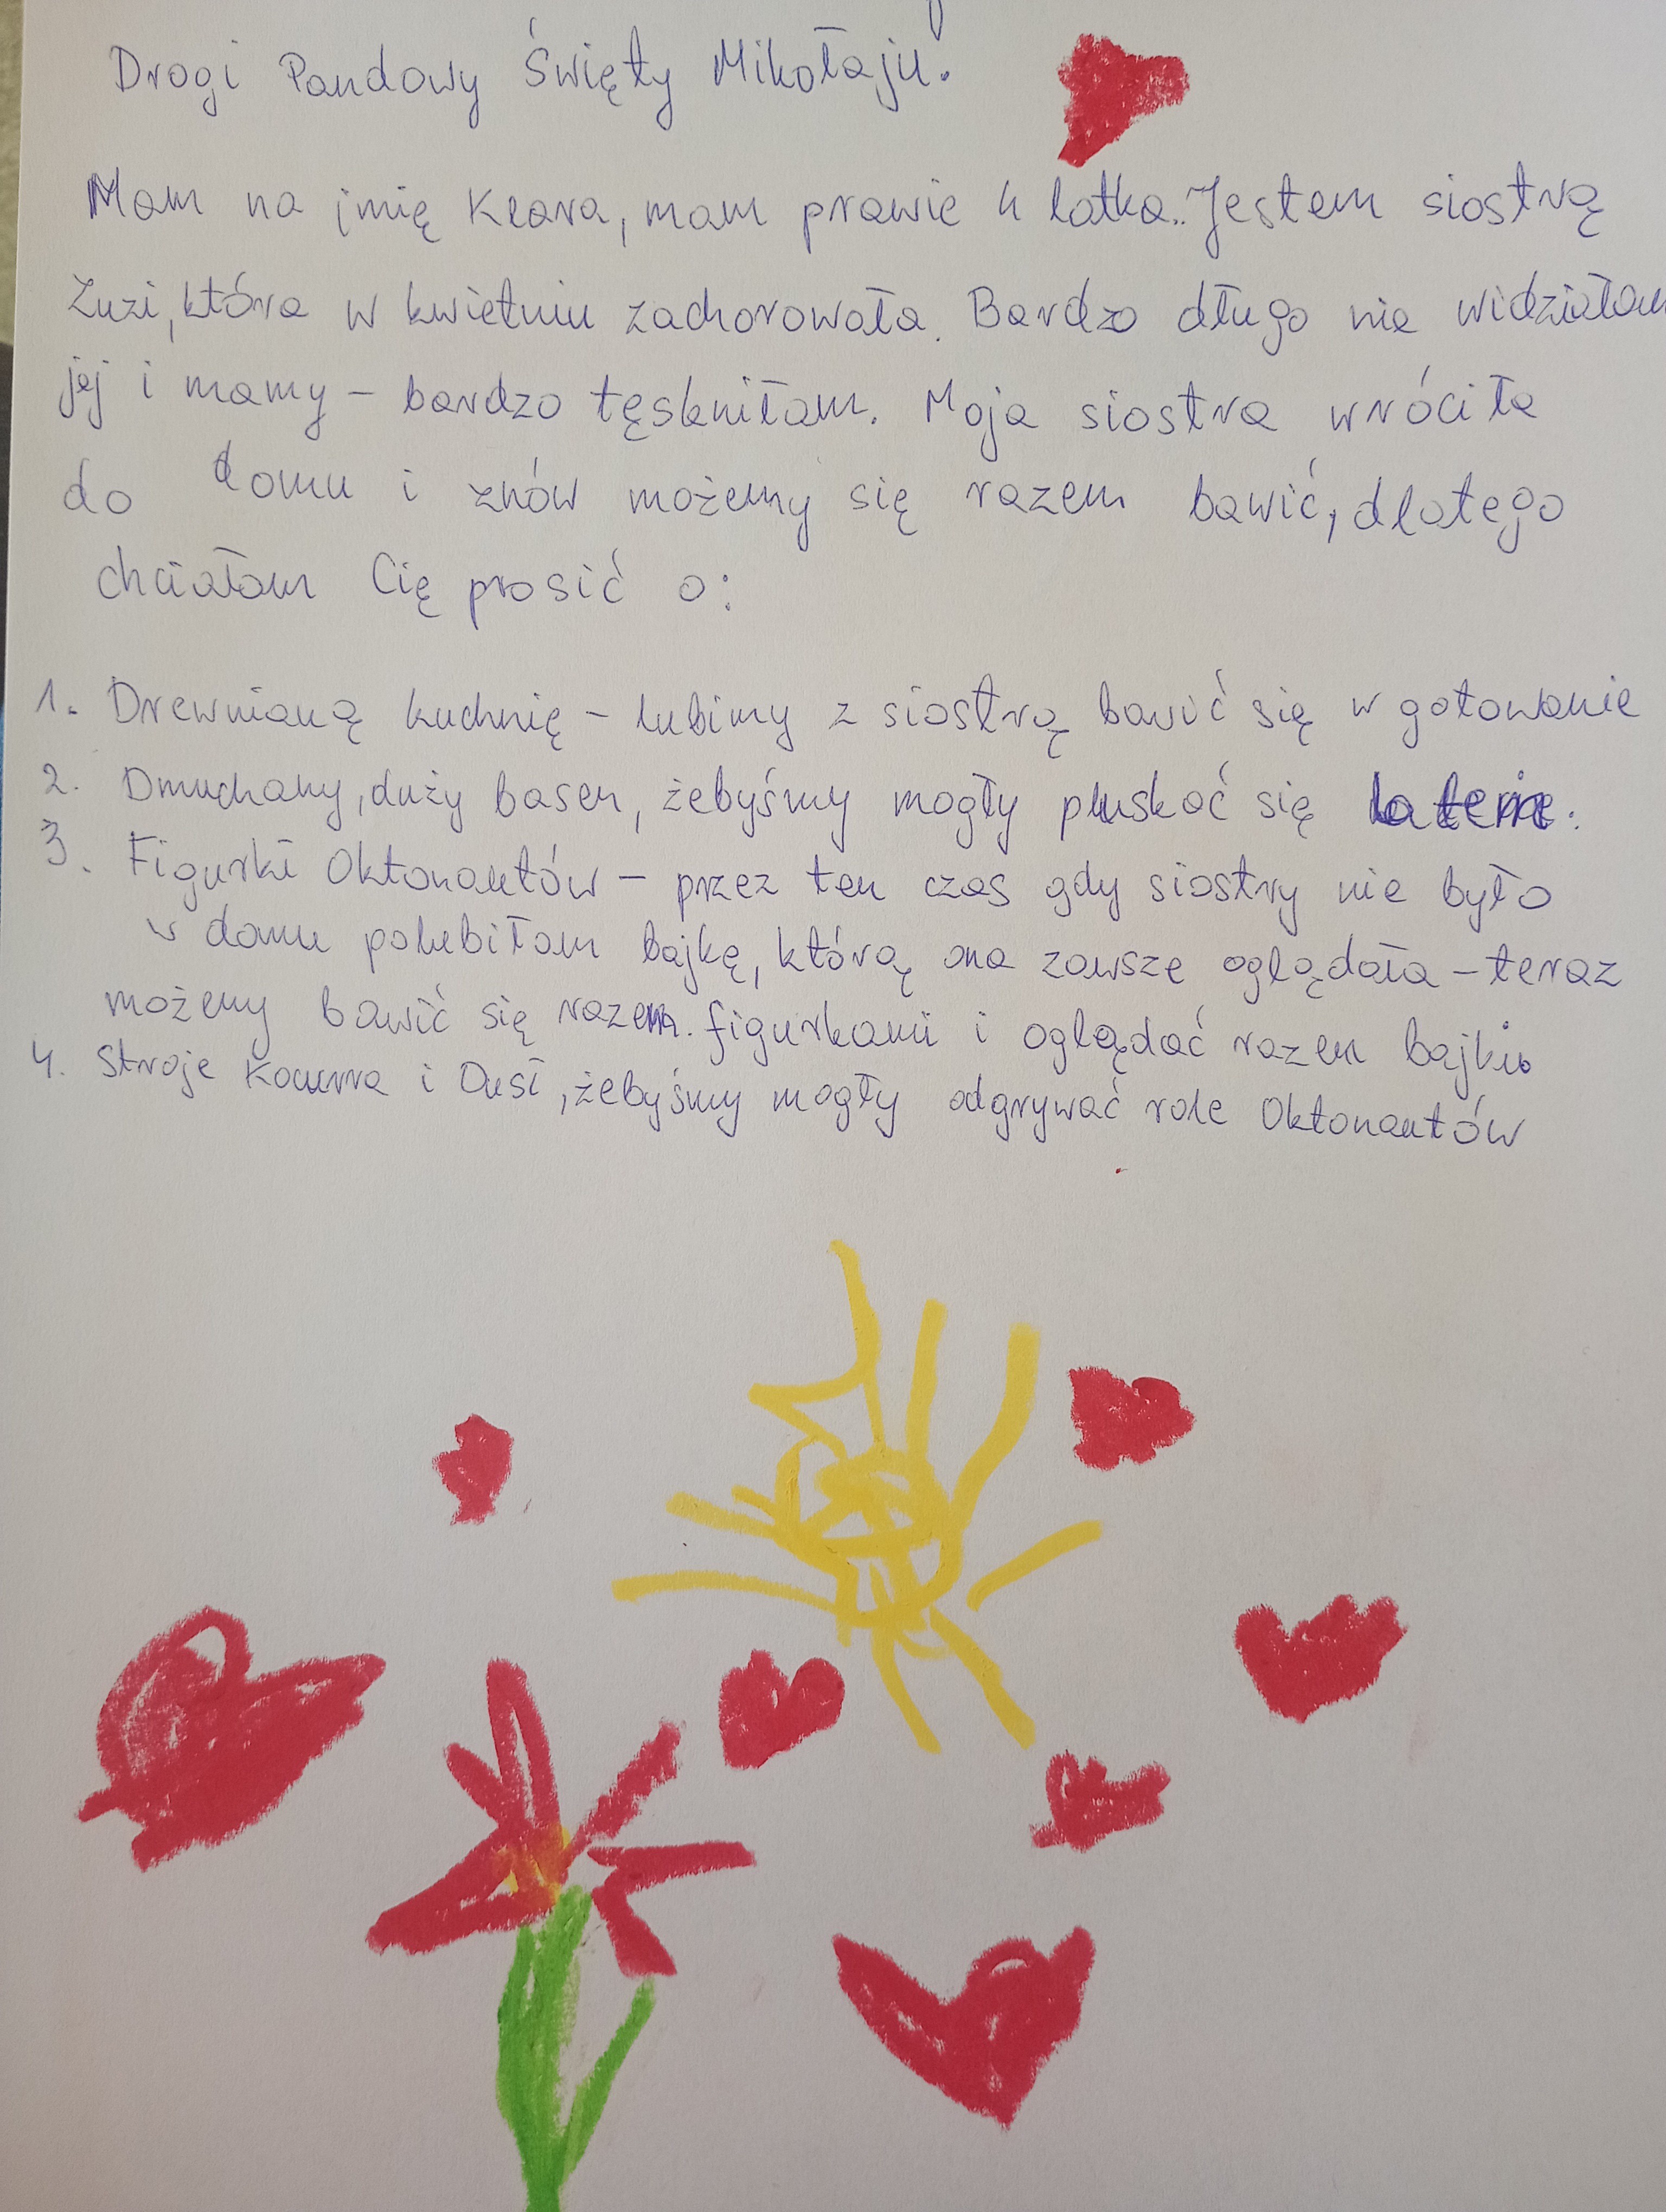 Drogi Pandowy Święty Mikołaju!
Mam na imię Klara, mam prawie 4 latka. Jestem siostrą
Zuzi, która w kwietniu zachorowała. Bardzo długo nie widziałam
jej i mamy – bardzo tęskniłam. Moja siostra wróciła
do domu i znów możemy się razem bawić, dlatego
chciałam Cię prosić o:
1. Drewnianą kuchnię – lubimy z siostrą bawić się w gotowanie
2. Dmuchany, duży basen, żebyśmy mogły pluskać się latem.
3. Figurki Oktonautów – przez ten czas gdy siostry nie było
w domu polubiłam bajkę, którą ona zawsze oglądała – teraz
możemy bawić się razem figurkami i oglądać razem bajki.
4. Stroje Kocurra i Dusi, żebyśmy mogły odgrywać role Oktonautów